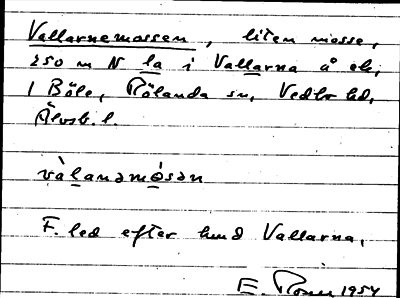 Vallarnemossen, liten mosse,
250 m N la i Vallarna å ek,
1 Böle, Rölanda sn, Vedbo hd,
Älvsb. l.
vàlanəmósən
F. led efter hmd Vallarna.
E. 1954